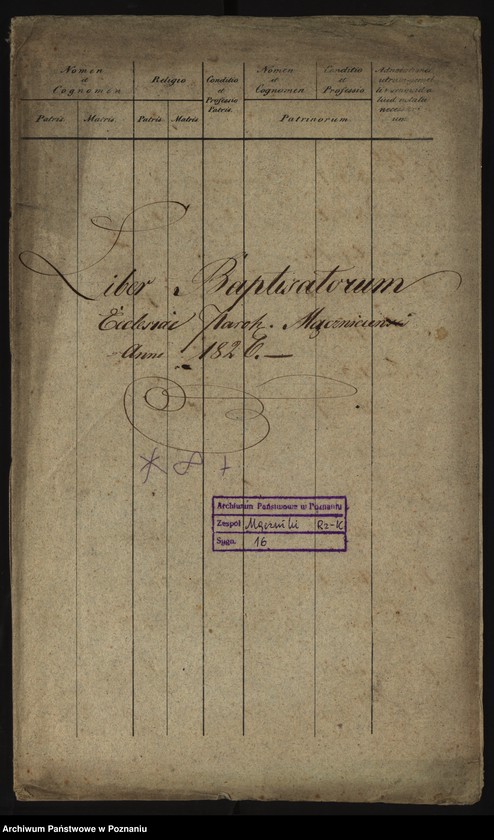 Nomen et Cognomen
Religio
Conditio et Professio Patris.
Nomen et Cognomen
Conditio et Professio
Patris.
Matris.
Patris.
Matris.
Patrinorum
Liber Baptisatorum
Ecclesiae Paroh. Mączniciensis
Anni 1826.
Archiwum Państwowe w Poznaniu
Zespół Mączniki Rz-K
Sygn. 16
Archiwum Państwowe w Poznaniu